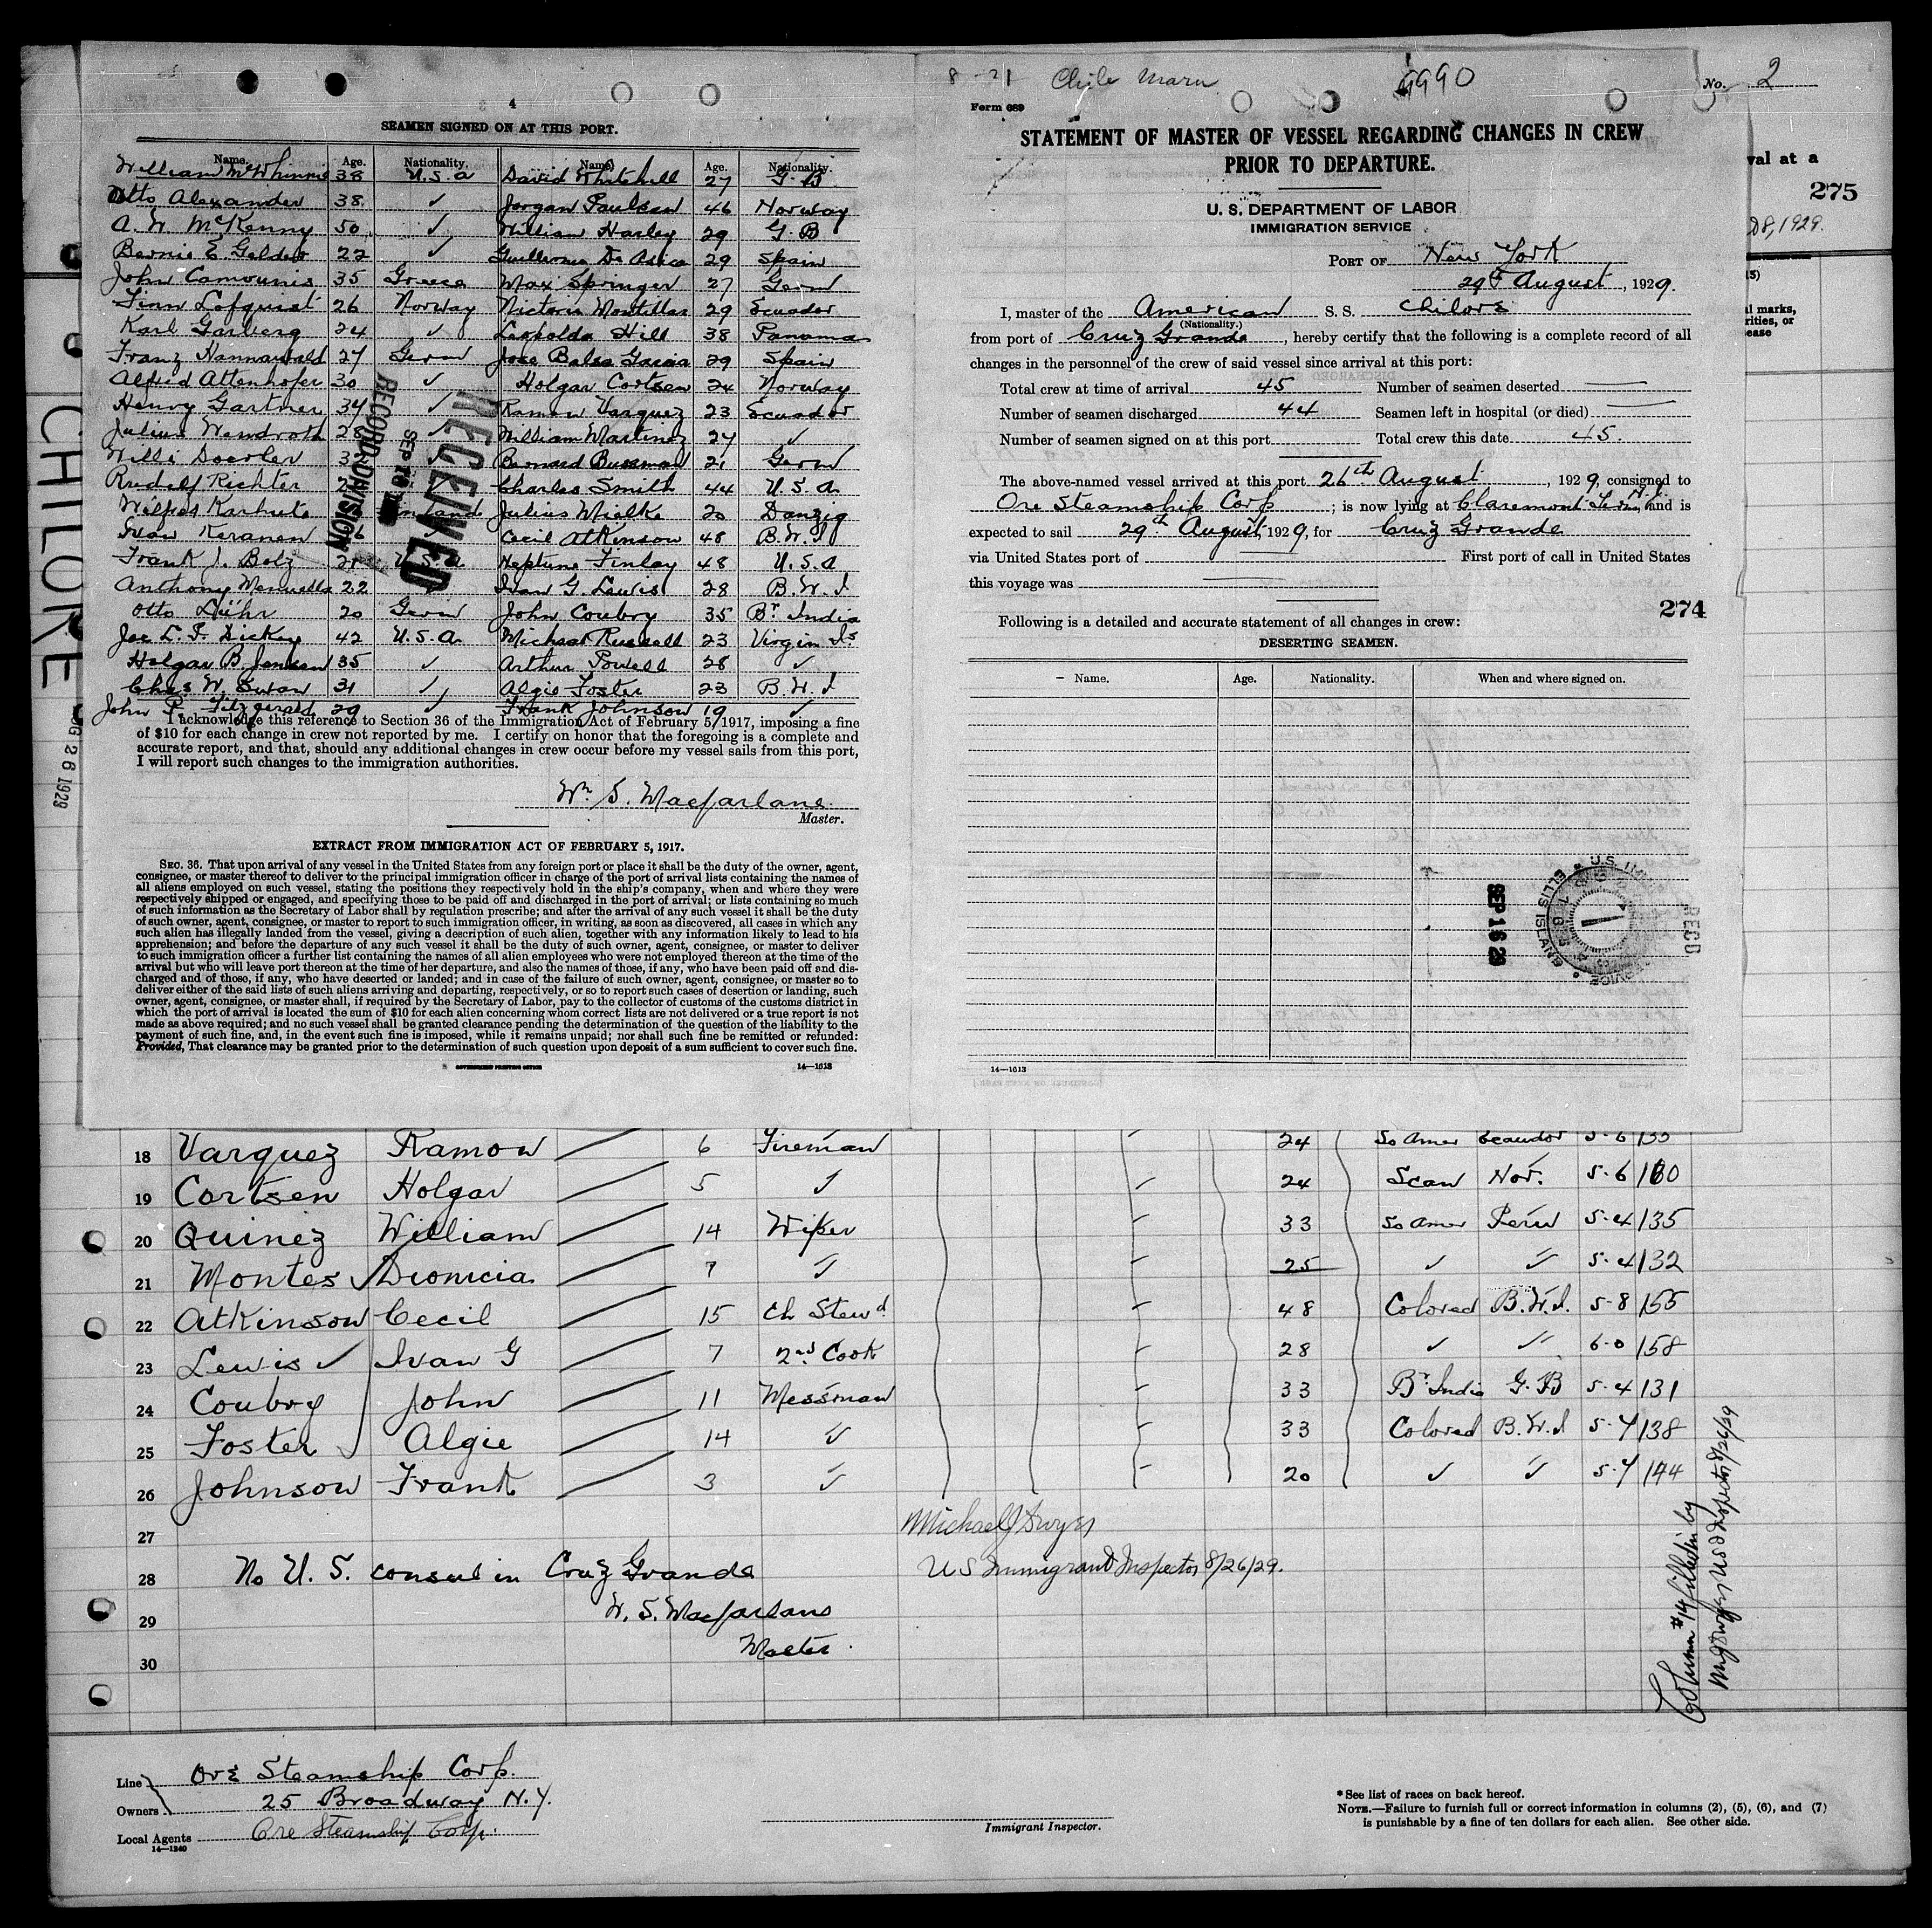 4
SEAMEN SIGNED ON AT THIS PORT.
Name. Age. Nationality. Name. Age. Nationality.
William McWhinnie 38 U.S.A David Whitehill 27 G.B
Otto Alexander 38 ✓ Jorgan Paulsen 46 Norway
A. W. McKenny 50 ✓ William Harley 29 G.B
Bernie E Geldert 22 ✓ Guillermo De Asica 29 Spain
John Camounis 35 Greece Max Springer 27 Germ
Finn Lofquist 26 Norway Victoria Montillas 29 Ecuador
Karl Garberg 24 ✓ Leopoldo Hill 38 Panama
Franz Hannawald 27 Germ Jose Balsa Garcia 29 Spain
Alfred Attenhofer 30 ✓ Holgar Cortsen 24 Norway
Henry Gartner 34 ✓ Ramon Varquez 23 Ecuador
Julius Wendroth ✓ William Martinez 24 ✓
Willi Doerler Bernard Bussman 21 Germ
Rudolf Richter Charles Smith 44 U.S.A
Karhut Julius Mielke 20 Danzig
Ivar Keranen Cecil Atkinson 48 B.W.I
Frank J. Bolz 21 U.S.A Neptune Finlay 48 U.S.A
Anthony Menuells 22 Ivan G. Lewis 28 B.W.I
Otto Lühr 20 Germ John Coubry 35 Br India
Joe L. F. Dickey 42 U.S.A. Michael Russell 23 Virgin Is
Holgar B Jensen 35 ✓ Arthur Powell 28 ✓
Chas W. Swan 31 ✓ Algie Foster 23 B.W.I
John P. Fitzgerald 29 Frank Johnson 19 ✓
RECEIVED
SEP 10
RECORD DIVISION
I acknowledge this reference to Section 36 of the Immigration Act of February 5, 1917, imposing a fine
of $10 for each change in crew not reported by me. I certify on honor that the foregoing is a complete and
accurate report, and that, should any additional changes in crew occur before my vessel sails from this port,
I will report such changes to the immigration authorities.
Wm S. Macfarlane.
Master.
EXTRACT FROM IMMIGRATION ACT OF FEBRUARY 5, 1917.
SEC. 36. That upon arrival of any vessel in the United States from any foreign port or place it shall be the duty of the owner, agent,
consignee, or master thereof to deliver to the principal immigration officer in charge of the port of arrival lists containing the names of
all aliens employed on such vessel, stating the positions they respectively hold in the ship's company, when and where they were
respectively shipped or engaged, and specifying those to be paid off and discharged in the port of arrival; or lists containing so much
of such information as the Secretary of Labor shall by regulation prescribe; and after the arrival of any such vessel it shall be the duty
of such owner, agent, consignee, or master to report to such immigration officer, in writing, as soon as discovered, all cases in which any
such alien has illegally landed from the vessel, giving a description of such alien, together with any information likely to lead to his
apprehension; and before the departure of any such vessel it shall be the duty of such owner, agent, consignee, or master to deliver
to such immigration officer a further list containing the names of all alien employees who were not employed thereon at the time of the
arrival but who will leave port thereon at the time of her departure, and also the names of those, if any, who have been paid off and dis-
charged and of those, if any, who have deserted or landed; and in case of the failure of such owner, agent, consignee, or master so to
deliver either of the said lists of such aliens arriving and departing, respectively, or so to report such cases of desertion or landing, such
owner, agent, consignee, or master shall, if required by the Secretary of Labor, pay to the collector of customs of the customs district in
which the port of arrival is located the sum of $10 for each alien concerning whom correct lists are not delivered or a true report is not
made as above required; and no such vessel shall be granted clearance pending the determination of the question of the liability to the
payment of such fine, and, in the event such fine is imposed, while it remains unpaid; nor shall such fine be remitted or refunded:
Provided, That clearance may be granted prior to the determination of such question upon deposit of a sum sufficient to cover such fine.
GOVERNMENT PRINTING OFFICE 14—1613
8-21 Chile Maru 9990
Form 689
STATEMENT OF MASTER OF VESSEL REGARDING CHANGES IN CREW
PRIOR TO DEPARTURE.
U. S. DEPARTMENT OF LABOR
IMMIGRATION SERVICE
PORT OF New York
29th August, 1929.
I, master of the American S. S. Chilore
(Nationality.)
from port of Cruz Grande, hereby certify that the following is a complete record of all
changes in the personnel of the crew of said vessel since arrival at this port:
Total crew at time of arrival 45 Number of seamen deserted
Number of seamen discharged 44 Seamen left in hospital (or died)
Number of seamen signed on at this port Total crew this date 45.
The above-named vessel arrived at this port 26th August, 1929, consigned to
Ore Steamship Corp; is now lying at Claremont Term N.J. and is
expected to sail 29th August, 1929, for Cruz Grande
via United States port of First port of call in United States
this voyage was
274
Following is a detailed and accurate statement of all changes in crew:
DESERTING SEAMEN.
Name. Age. Nationality. When and where signed on.
SEP 16 29
RECD
ELLIS ISLAND
14—1613
No. 2
val at a
275
28, 1929.
l marks,
rities, or
ease
CHILORE
AUG 26 1929
18 Varquez Ramon 6 Fireman 24 So Amer Ecuador 5-6 135
19 Cortsen Holgar 5 ✓ 24 Scan Nor. 5-6 160
20 Quinez William 14 Wiper 33 So Amer Peru 5-4 135
21 Montes Dionicia 7 ✓ 25 ✓ ✓ 5-4 132
22 Atkinson Cecil 15 Ch Stewd 48 Colored B.W.I. 5-8 155
23 Lewis ✓ Ivan G 7 2nd Cook 28 ✓ ✓ 6-0 158
24 Coubry John 11 Messman 33 Br India G.B 5-4 131
25 Foster Algie 14 ✓ 33 Colored B.W.I 5-7 138
26 Johnson Frank 3 ✓ 20 ✓ ✓ 5-7 144
27
Michael J Dwyer
28 No U. S. consul in Cruz Grande US Immigrant Inspector 8/26/29.
29 W. S. Macfarlane
Master.
30
Column #14 filled in by
MJ Dwyer US Inspector 8/26/29
Line Ore Steamship Corp.
Owners 25 Broadway N.Y.
Local Agents Ore Steamship Corp.
14—1240
Immigrant Inspector.
* See list of races on back hereof.
NOTE.—Failure to furnish full or correct information in columns (2), (5), (6), and (7)
is punishable by a fine of ten dollars for each alien. See other side.